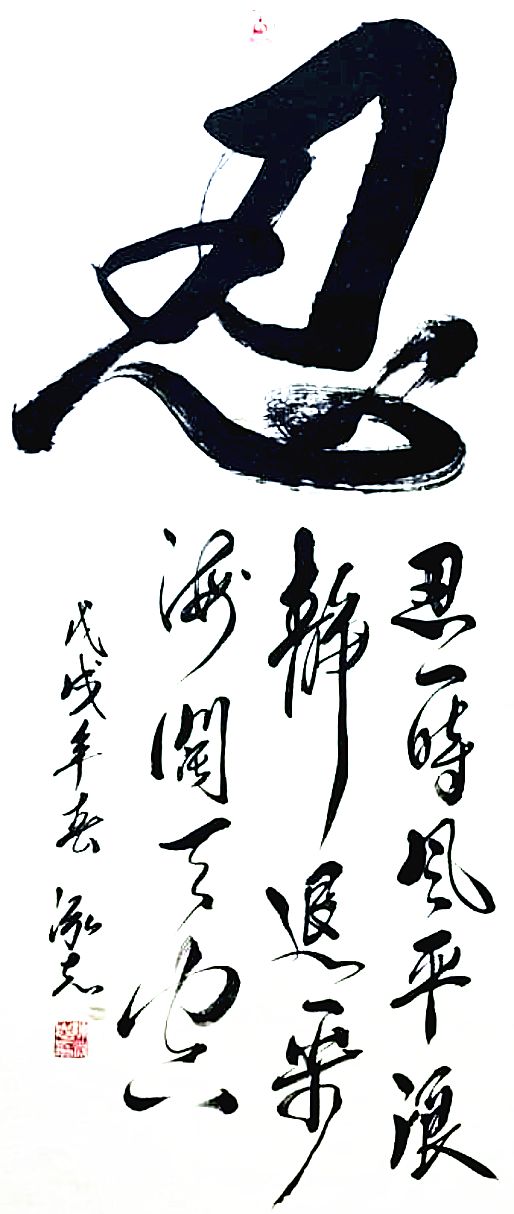 忍
忍一時风平浪
静退一步
海阔天空
戊戌年春 泓志